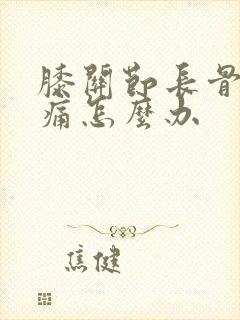 膝關節長骨
痛怎麼办
焦健